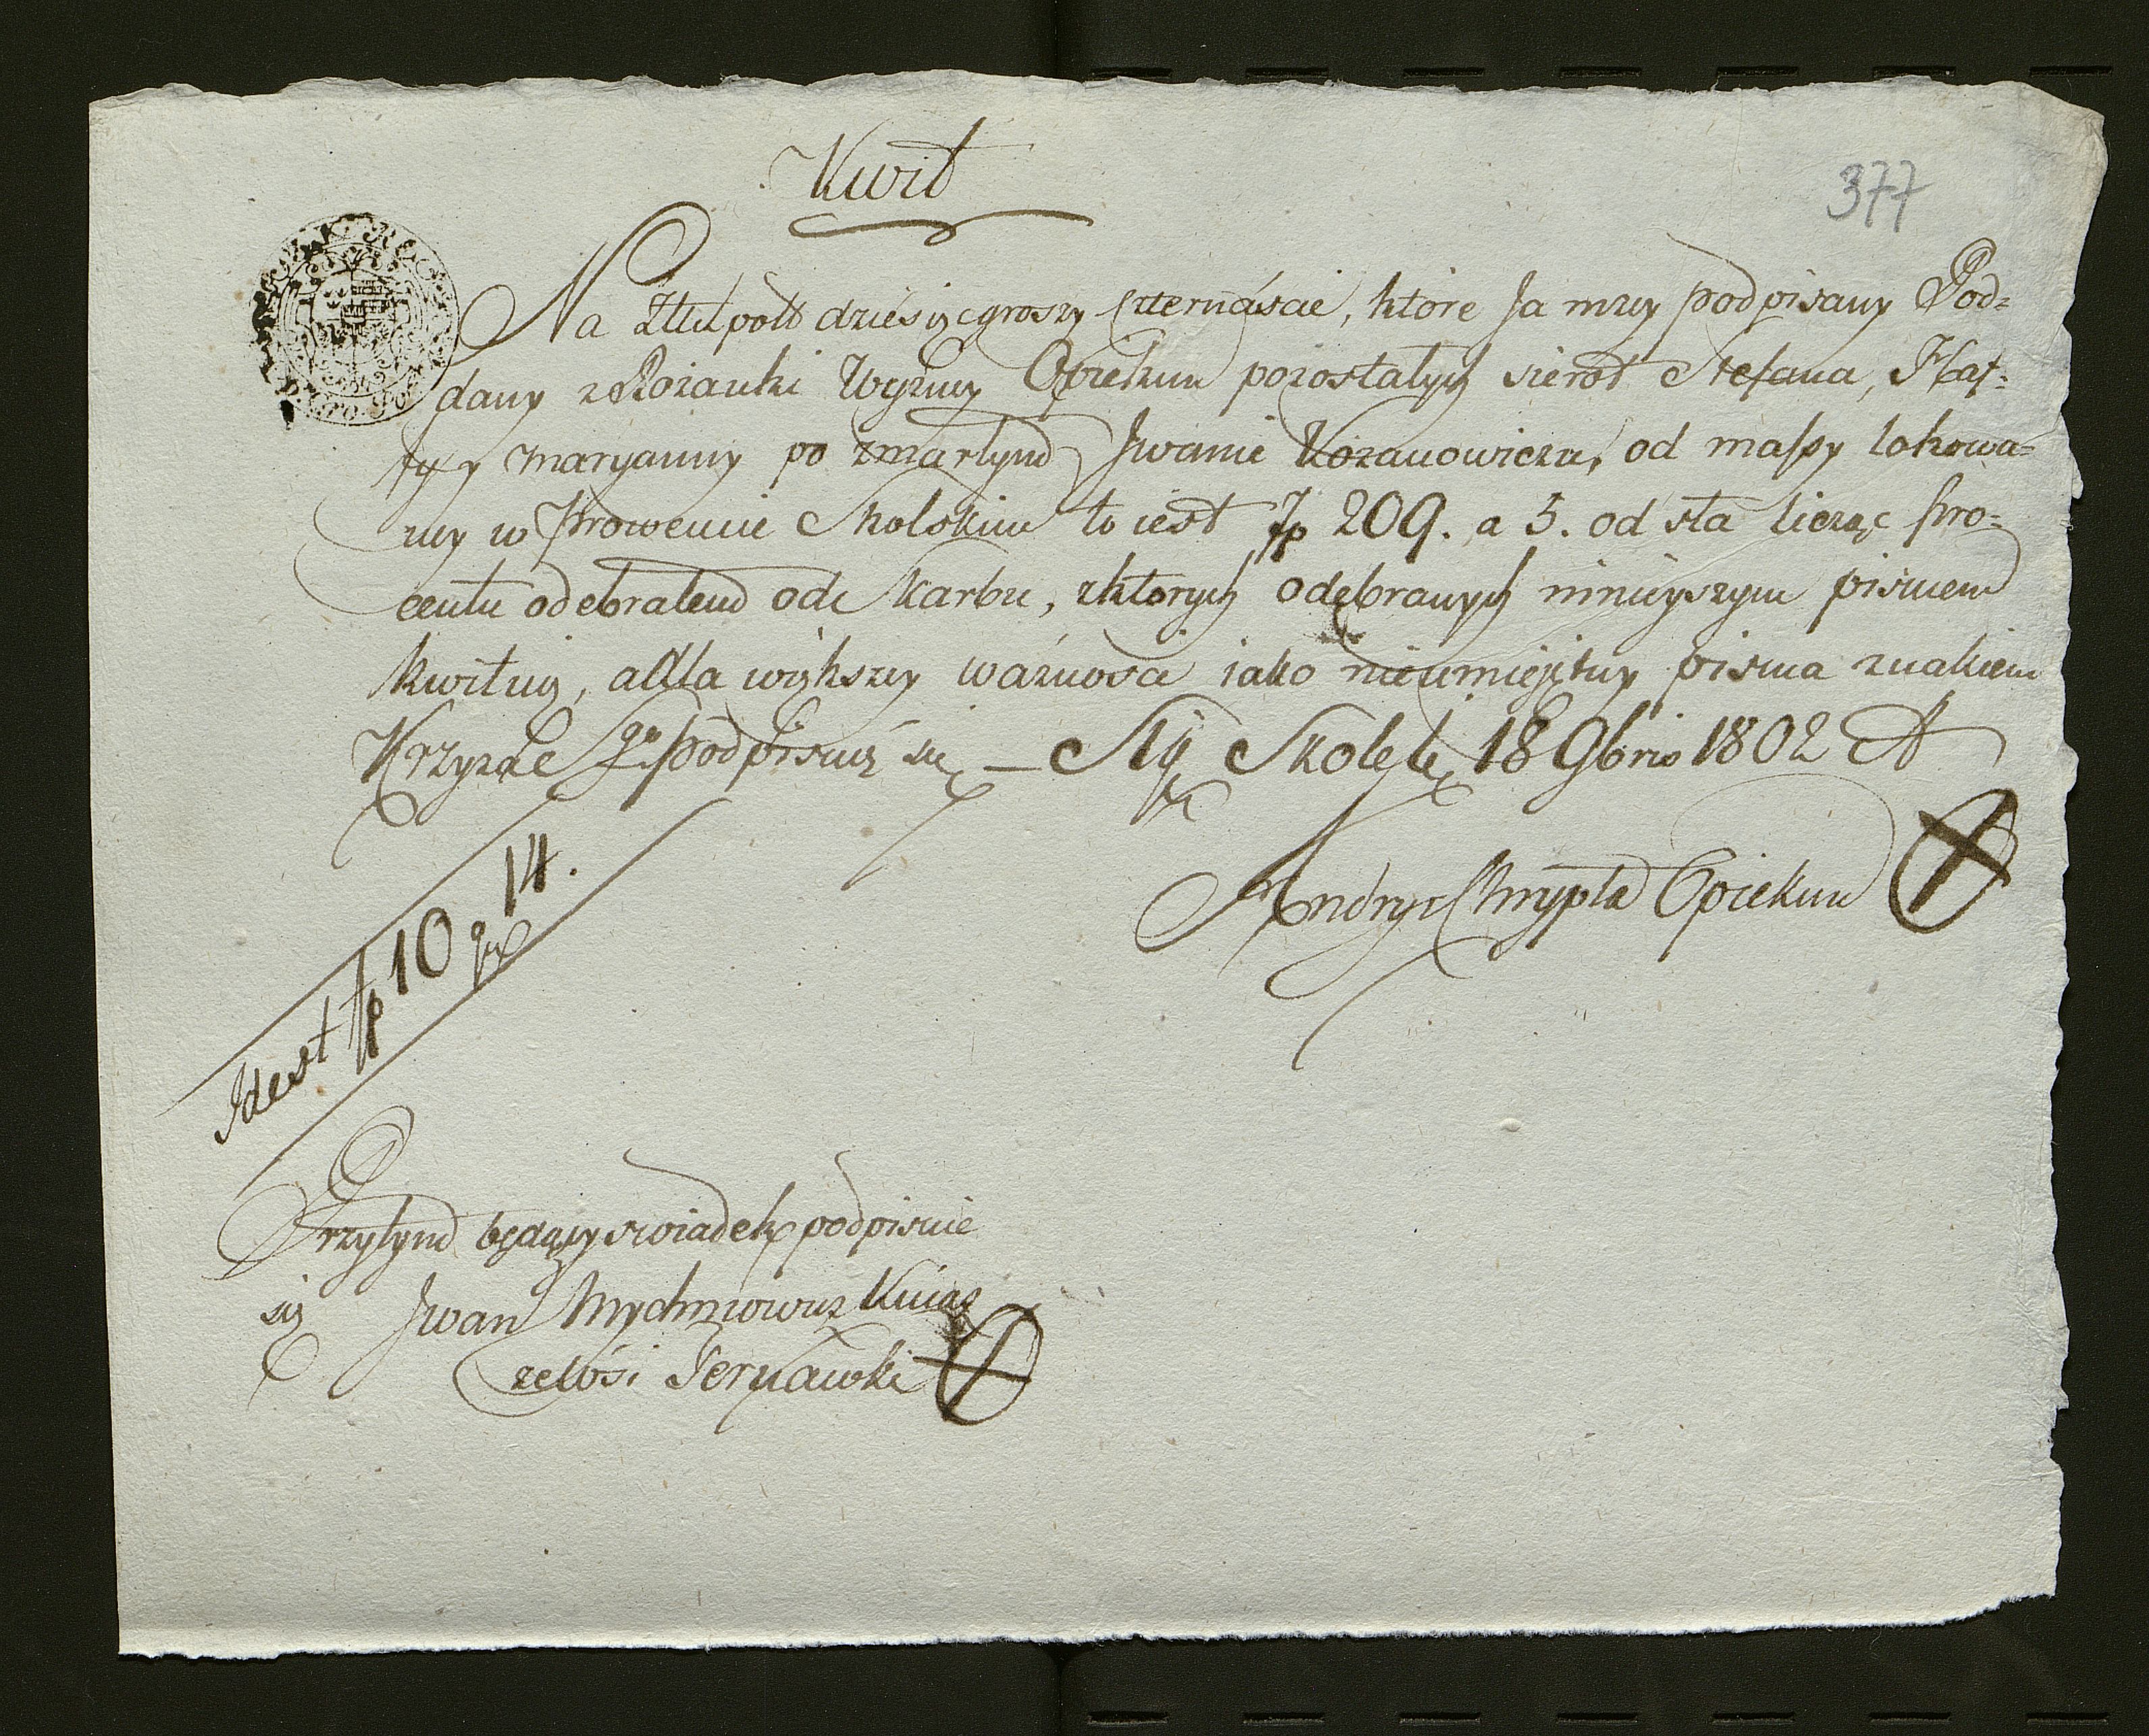 Kwit
377
Na Złch polh dziesięc groszy szternáscie, które Ja niżey podpisany Pod=
dany z Rożanki Wyżney Opiekun pozostałych sierot Stefana, Naś=
tyi y Maryanny po zmarłym Jwanie Kozanowiczu, od massy lokowa=
ney w Prowencie Skolskim to iest fp 209. a 5. od sta licząc pro=
centu odebralem od Skarbu, z których odebranych ninieyszym pismem
kwituię, a dla większey ważnosci iako nieumieiętny pisma znakiem
Krzyża S go podpisuię się — Skole 18 9bris 1802
Andrys Chrypta Opiekun
Id est fp 10 gr 14.
Przytym będący swiadek podpisuie
się Jwan Mychniowicz Kniaź
ze Wsi Ternawki